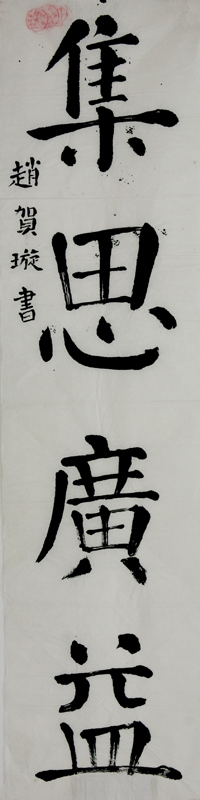 集思廣益
趙賀璇書